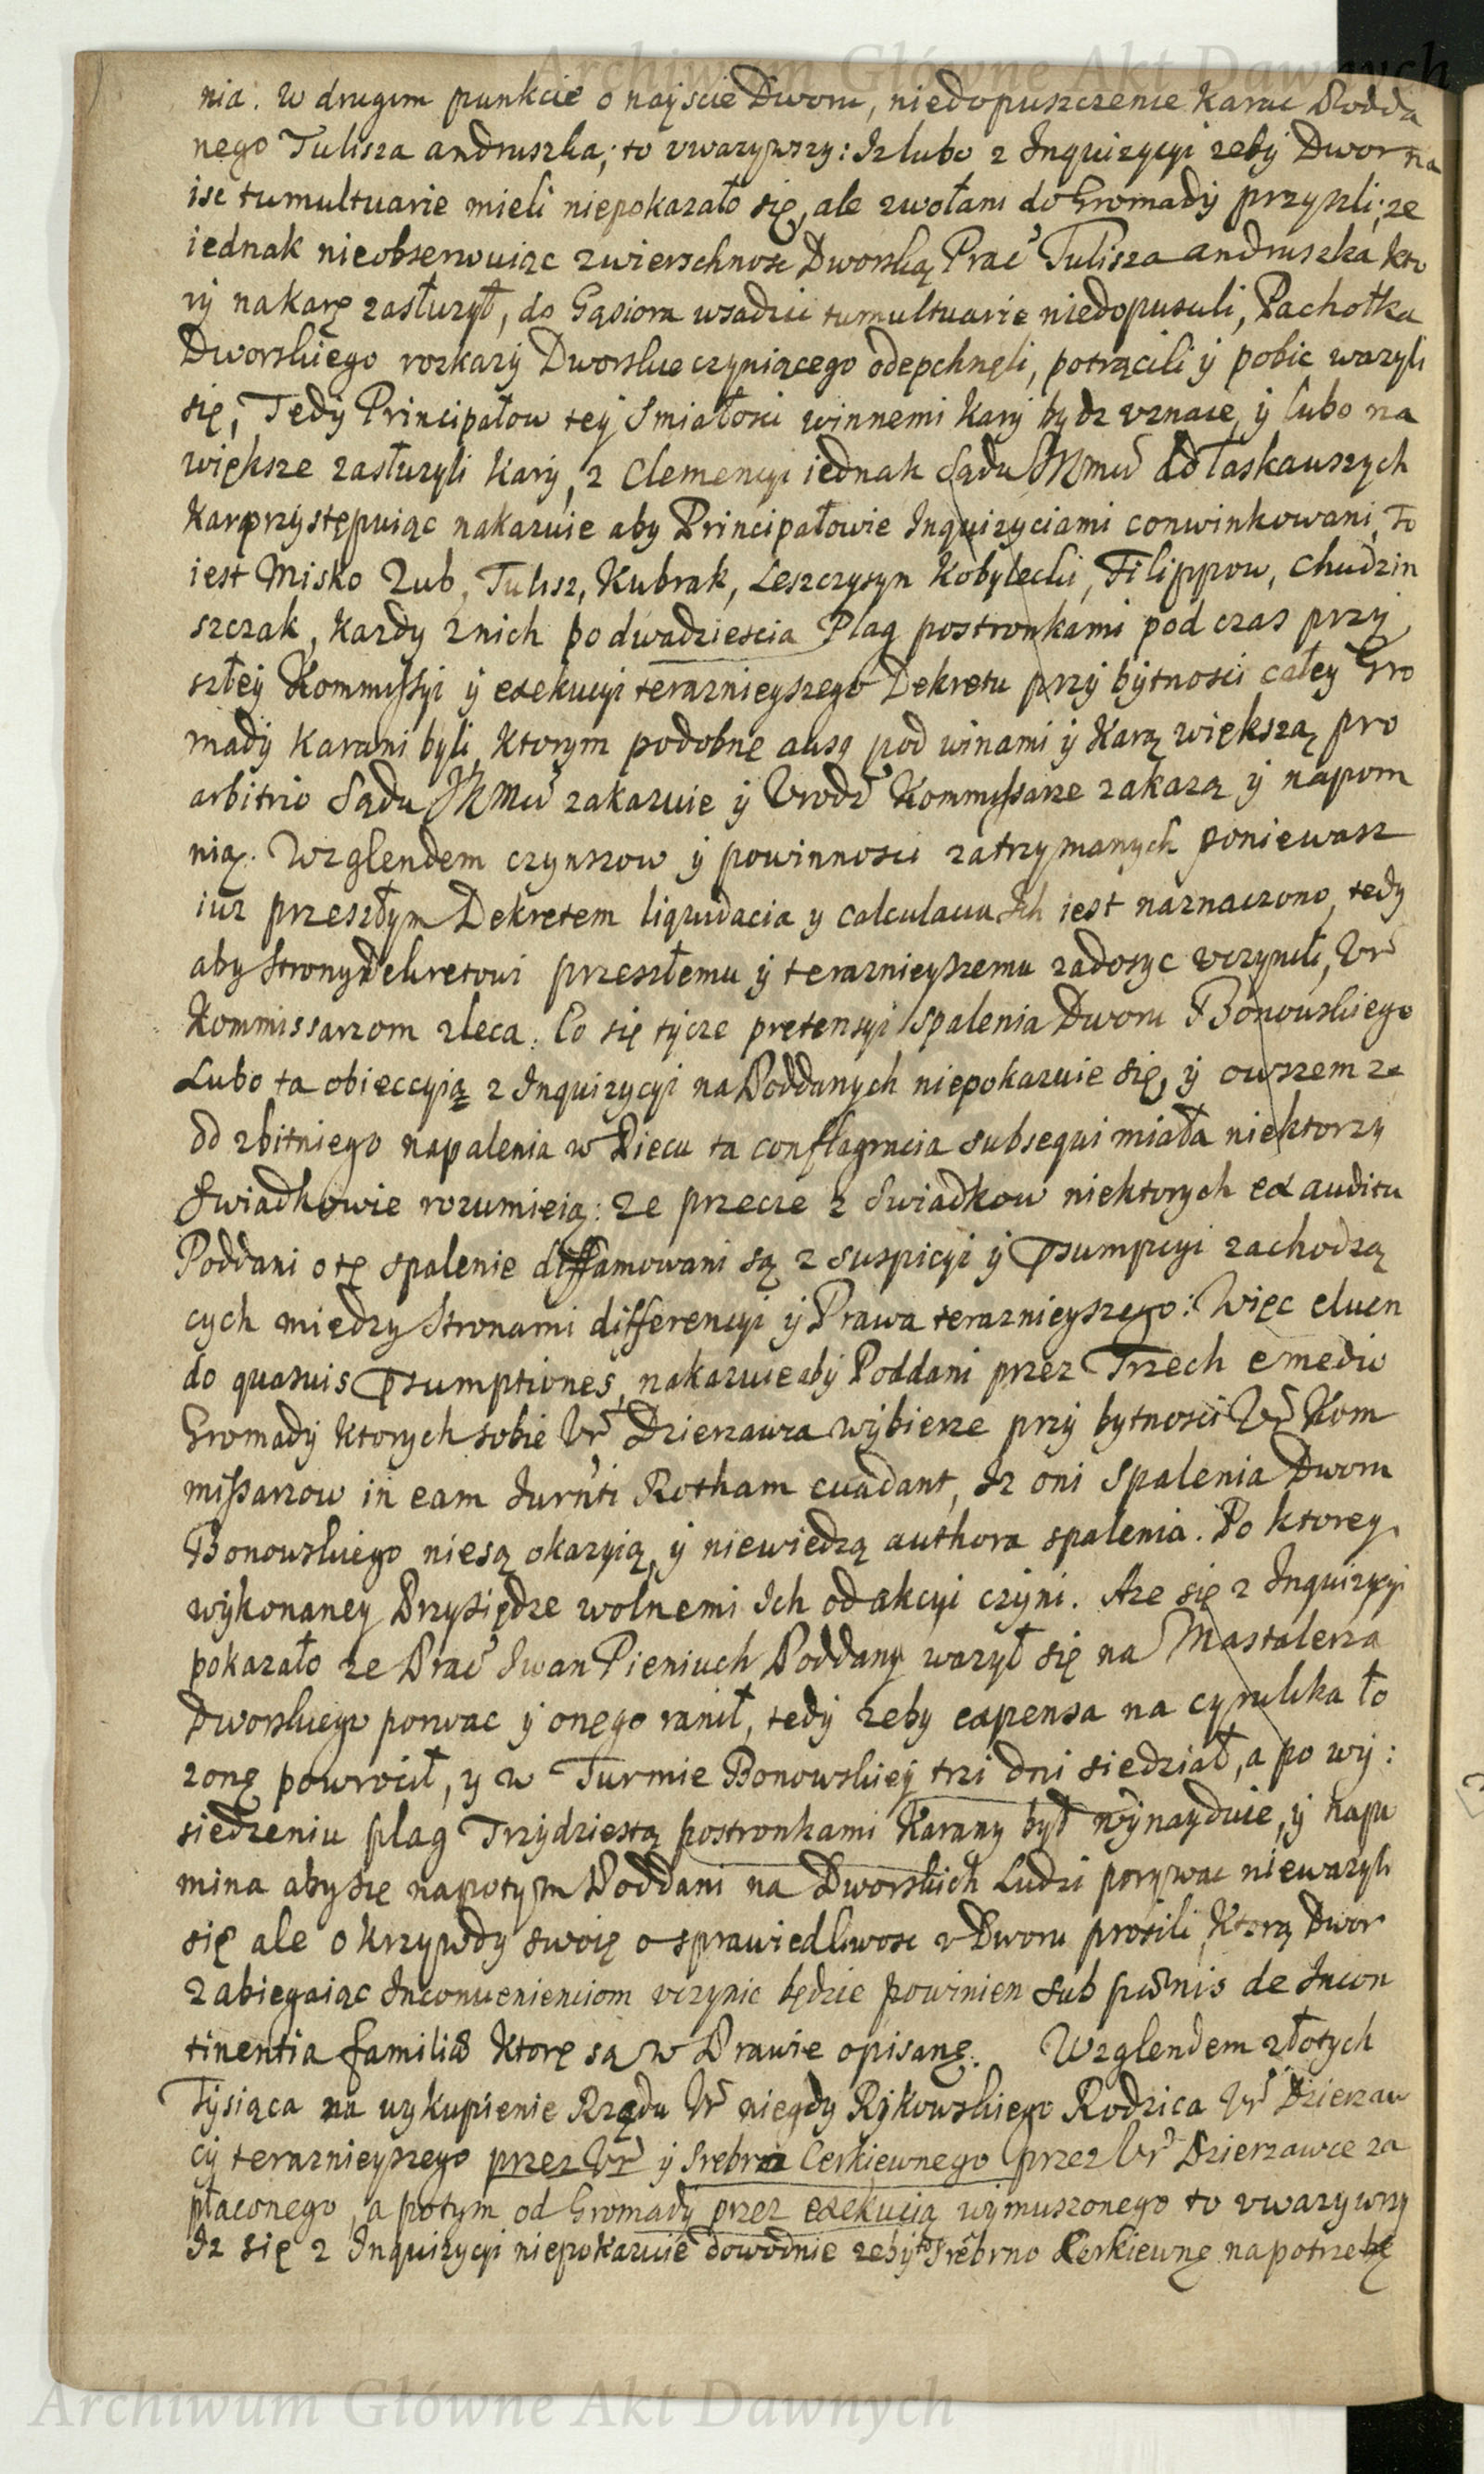 nia. W drugim punkcie o nayscie Dworu, niedopuszczenie karac Podda
nego Tulisza andruszka; to vwazywszy: Iz lubo z Inquizycyi zeby Dwor na
isc tumultuarie mieli niepokazało się, ale zwołani do Gromady przyszli; ze
iednak nieobserwuiąc zwierschnosc Dworską Prac Tulisza andruszka kto
ry na karę zasłuzył, do Gąsiora wsadzic tumultuarie niedopuscili, Pachołka
Dworskiego rozkazy Dworskie czyniącego odepchnęli, potrącili y pobic wazyli
się, Tedy Principałow tey smiałosci winnemi kary bydz vznaie, y lubo na
większe zasłuzyli kary, z Clemencyi iednak Sądu JKMci do łaskauszych
kar przystępuiąc nakazuie aby Principałowie Inquizyciami conwinkowani, to
iest Misko Zub, Tulisz, Kubrak, Leszczysyn Kobylecki, Filippow, Chudzin
szczak, kazdy z nich po dwadziescia Plag postronkami pod czas przy
szłey Kommissyi y exekucyi teraznieyszego Dekretu przy bytnosci całey Gro
mady karani byli, ktorym podobnę ausa pod winami y karą większą pro
arbitrio Sądu JKMci zakazuie y Vrodz Kommissarze zakazą y napom
nią. Wzglendem czynszow y powinnosci zatrzymanych poniewasz
iuz przeszłym Dekretem liquidacia y calculacia Ich iest naznaczono, tedy
aby Strony Dekretowi przeszłemu y teraznieyszemu zadosyc vczynili, Vr
Kommissarzom zleca. Co się tycze pretensyi spalenia Dworu Bonowskiego
Lubo ta obieccyią z Inquizycyi na Poddanych niepokazuie się, y owszem ze
od zbitniego napalenia w Piecu ta conflagracia subsequi miała niektorzy
Swiadkowie rozumieią: ze przecze z Swiadkow niektorych ex auditu
Poddani o tę spalenie diffamowani są z suspicyi y Psumpcyi zachodzą
cych miedzy Stronami differencyi y Prawa teraznieyszego: Więc eluen
do quasuis Psumptiones, nakazuie aby Poddani przez Trzech e medio
Gromady ktorych sobie Vr Dzierzawca wybierze przy bytnosci Vr Kom
missarzow in eam Jurnti Rotham euadant, Iz oni spalenia Dworu
Bonowskiego niesą okazyią, y niewiedzą authora spalenia. Po ktorey
wykonaney Przysiędze wolnemi Ich od akcyi czyni. Aze się z Inquizycyi
pokazało ze Prac Iwan Pieniuch Poddany wazył się na Mastalerza
Dworskiego porwac y onego ranił, tedy zeby expensa na cyrulika ło
zonę powrocił, y w Turmie Bonowskiey trzi dni siedział, a po wy:
siedzeniu plag Trzydziestą postronkami karany był wynayduie, y napo
mina aby się napotym Poddani na Dworskich Ludzi porywac niewazyli
się ale o krzywdy swoię o sprawiedliwosc v Dworu prosili, ktorą Dwor
zabiegaiąc Inconuenienciom vczynic będzie powinien sub pœnis de Incon
tinentia familiæ ktorę są w Prawie opisanę. Wzglendem złotych
Tysiąca na wykupienie Rzędu Vr niegdy Rykowskiego Rodzica Vr Dzierzaw
cy teraznieyszego przez Vr y srebra Cerkiewnego przez Vr Dzierzawce za
płaconego, a potym od Gromady przez exekucią wymuszonego to vwazywszy
Iz się z Inquizycyi niepokazuie dowodnie zeby to srebrno Cerkiewnę na potrzebę